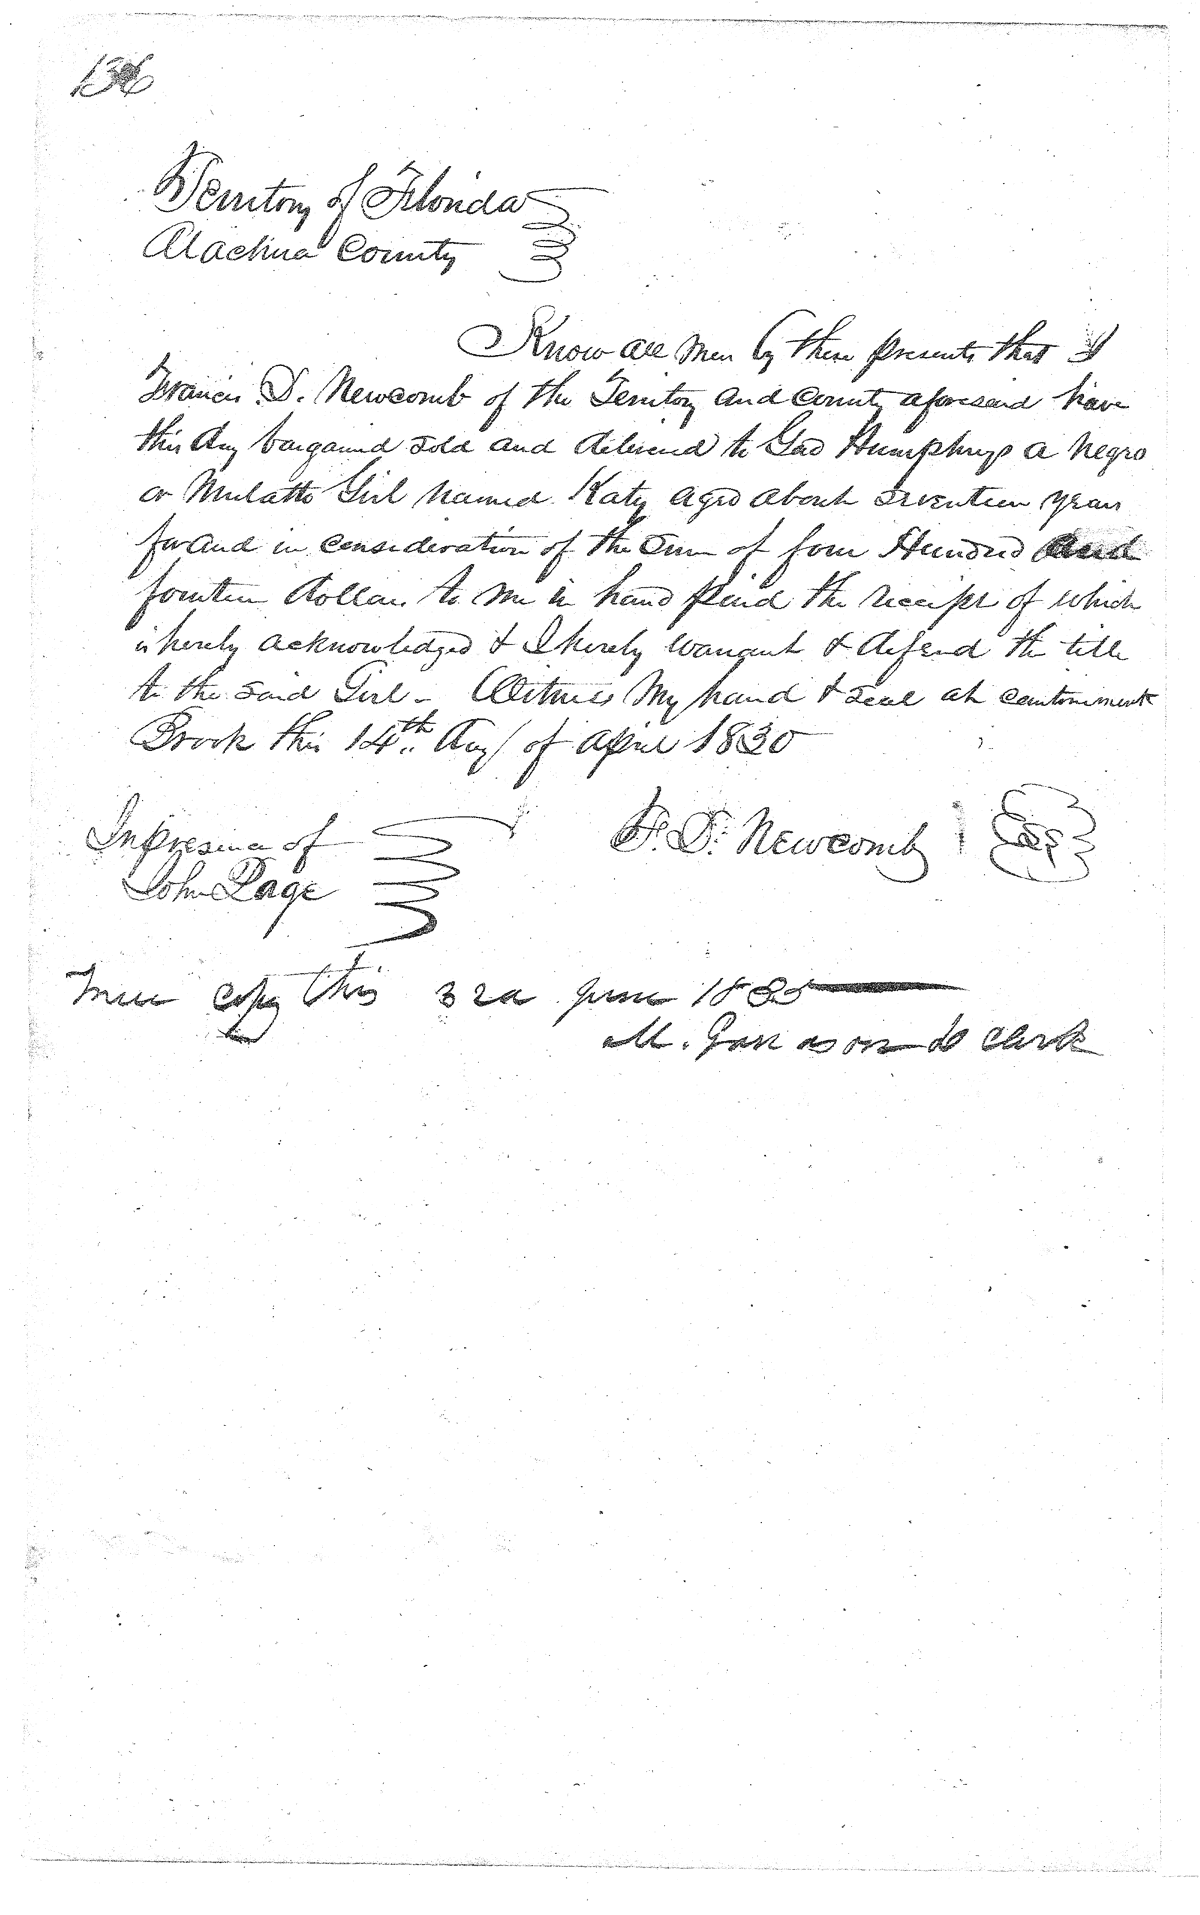 136
Territory of Florida
Alachua County
Know all Men by these presents that I
Francis D. Newcomb of the Territory and County aforesaid have
this day bargained sold and delivered to Gad Humphrys a Negro
or Mulatto Girl named Katy aged about seventeen years
for and in consideration of the Sum of four Hundred and
fourteen dollars to me in hand paid the receipt of which
is hereby acknowledged & I hereby warrant & defend the title
to the said Girl - Witness My hand & seal at cantonment
Brook this 14th day of April 1830
In presence of
John Page
F. D. Newcomb
True copy this 3rd June 1835
M. Garrason D clerk